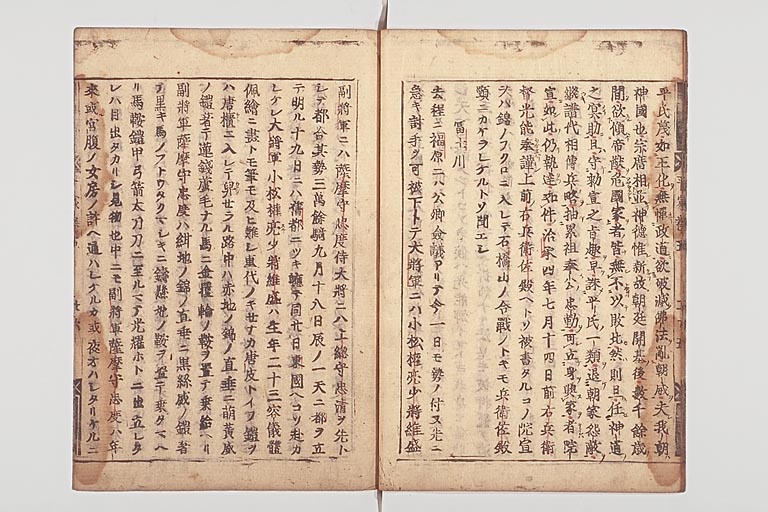 平氏蔑如王化無憚政道欲破滅佛法亂朝威夫我朝
神國也宗廟相並神德惟新故朝廷開基後數千餘歳
間欲傾帝猷危國家者皆無不以敗北然則且任神道
之冥助且守勅宣之旨趣早誅平氏一類退朝家怨敵
繼譜代相傳兵略抽累祖奉公忠勤可立身興家者院
宣如此仍執達如件治承四年七月十四日前右兵衛
督光能奉謹上前右兵衛佐殿ヘトソ被書タルコノ院宣
ヲハ錦ノフクロニ入レテ石橋山ノ合戰ノトキモ兵衛佐殿
頸ニカケラレケルトソ聞エシ
冨士川
去程ニ福原ニハ公卿僉議アリテ今一日モ勢ノ付ヌ先ニ
急キ討手ヲ可被下トテ大將軍ニハ小松權亮少將維盛
副將軍ニハ薩摩守忠度侍大將ニハ上總守忠清ヲ先ト
シテ都合其勢三萬餘騎九月十八日辰ノ一天ニ都ヲ立
テ明ル十九日ニハ舊都ニツキ軈テ同廿日東國ヘコソ赴カ
レケレ大將軍小松權亮少將維盛ハ生年二十三容儀體
佩繪ニ書トモ筆モ及ヒ難シ重代ノキセナカ唐皮トイフ鎧ヲ
ハ唐櫃ニ入レテ舁セラル路中ハ赤地ノ錦ノ直垂ニ萌黄威
ノ鎧着テ連錢蘆毛ナル馬ニ金覆輪ノ鞍ヲ置テ乗給ヘリ
副將軍薩摩守忠度ハ紺地ノ錦ノ直垂ニ黒絲威ノ鎧着
テ黒キ馬ノフトウタクマシキニ鑄懸地ノ鞍ヲ置テ乗タマヘ
リ馬鞍鎧甲弓箭太刀刀ニ至ルマテ光耀ホトニ出立レタ
レハ目出タカリシ見物也中ニモ副將軍薩摩守忠度ハ年
來或宮腹ノ女房ノ許ヘ通ハレケルカ或夜オハシタリケルニ